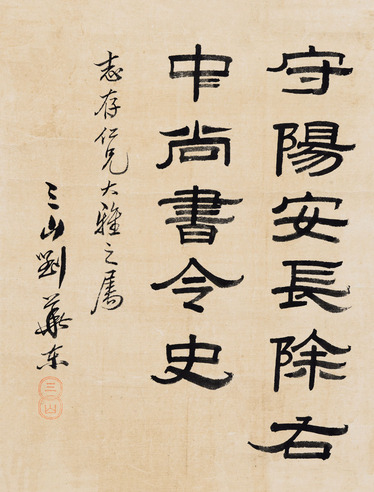 守陽安長除右
中尚書令史
志存仁兄大雅之属
三山劉華东
三山